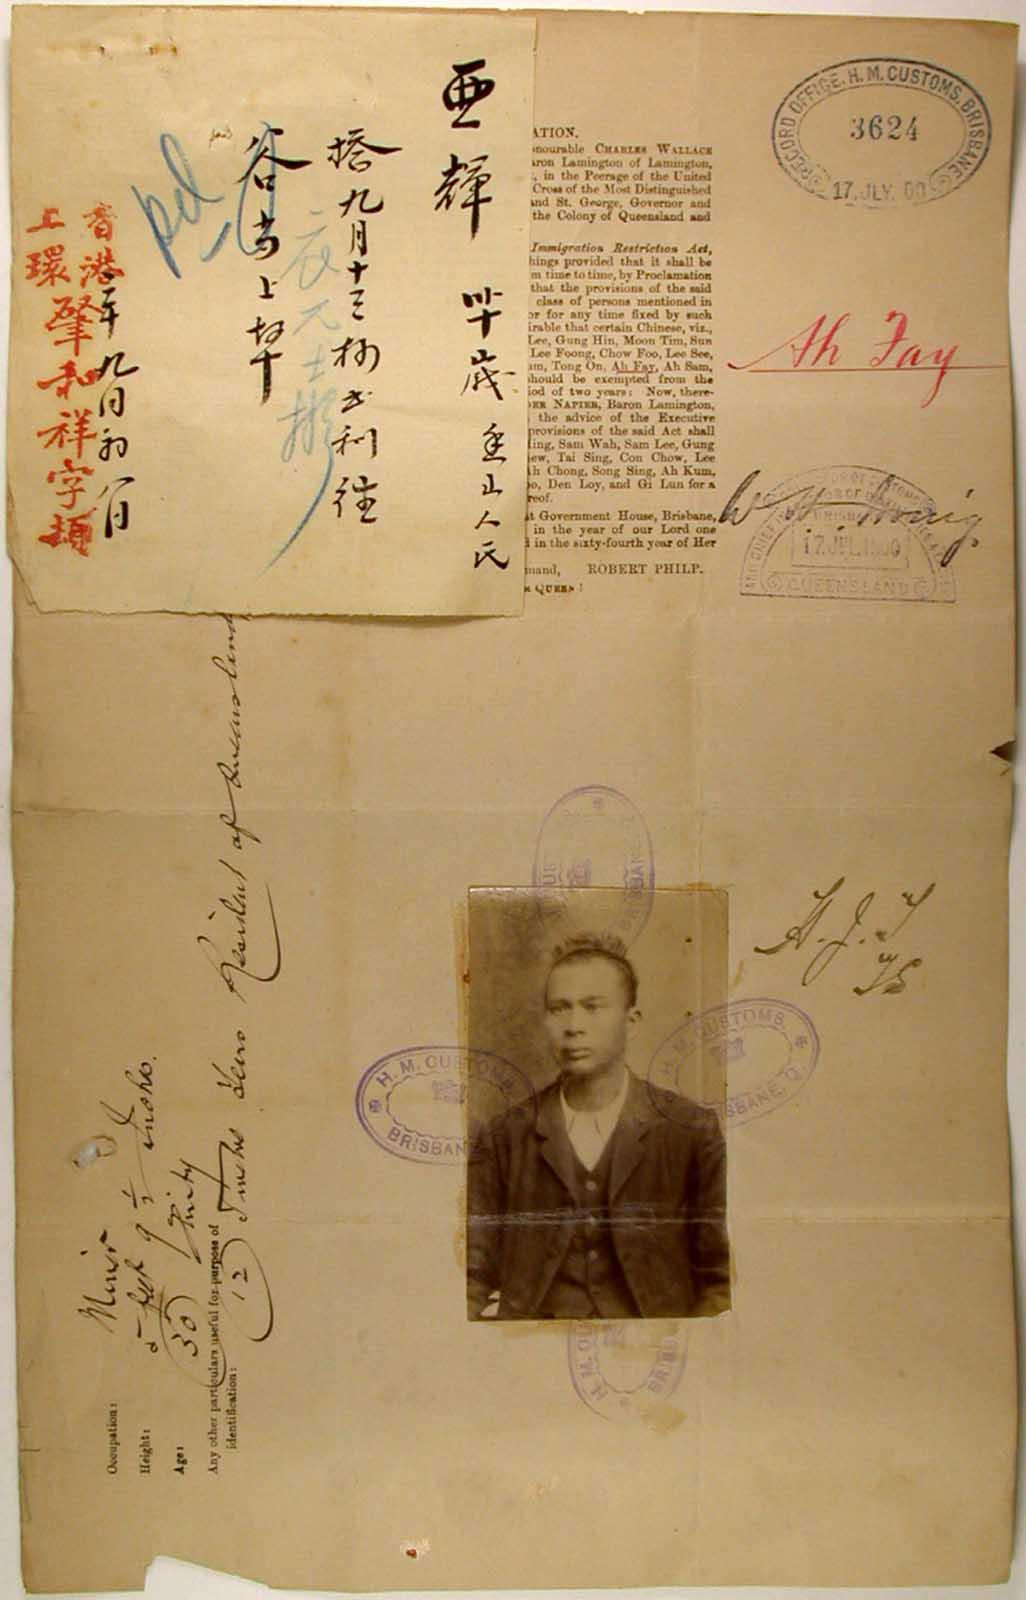 亜輝 卅歳 香山人氏
搭九月十三
谷当上埠
香港
上環
肇和祥字頼
九月初八日
RECORD OFFICE, H. M. CUSTOMS, BRISBANE
3624
17. JLY. 00
ATION.
onourable CHARLES WALLACE
aron Lamington of Lamington,
, in the Peerage of the United
Cross of the Most Distinguished
and St. George, Governor and
the Colony of Queensland and
Immigration Restriction Act,
hings provided that it shall be
m time to time, by Proclamation
that the provisions of the said
class of persons mentioned in
or for any time fixed by such
irable that certain Chinese, viz.,
Lee, Gung Hin, Moon Tim, Sun
Lee Foong, Chow Foo, Lee See,
um, Tong On, Ah Fay, Ah Sam,
should be exempted from the
iod of two years: Now, there-
DER NAPIER, Baron Lamington,
the advice of the Executive
provisions of the said Act shall
ling, Sam Wah, Sam Lee, Gung
ew, Tai Sing, Con Chow, Lee
Ah Chong, Song Sing, Ah Kum,
oo, Den Loy, and Gi Lun for a
reof.
t Government House, Brisbane,
in the year of our Lord one
d in the sixty-fourth year of Her
mand, ROBERT PHILP.
E QUEEN!
Ah Fay
17 JUL 1900
QUEENSLAND
Occupation: Miner
Height: 5 feet 9 1/2 Inches.
Age: 30 Thirty
Any other particulars useful for purpose of
identification: 12 Twelve Years Resident of Queensland
H. M. CUSTOMS
BRISBANE
H. M. CUSTOMS.
BRISBANE, Q.
BRISBANE
H. M. CUS
BRISB
H. J. T